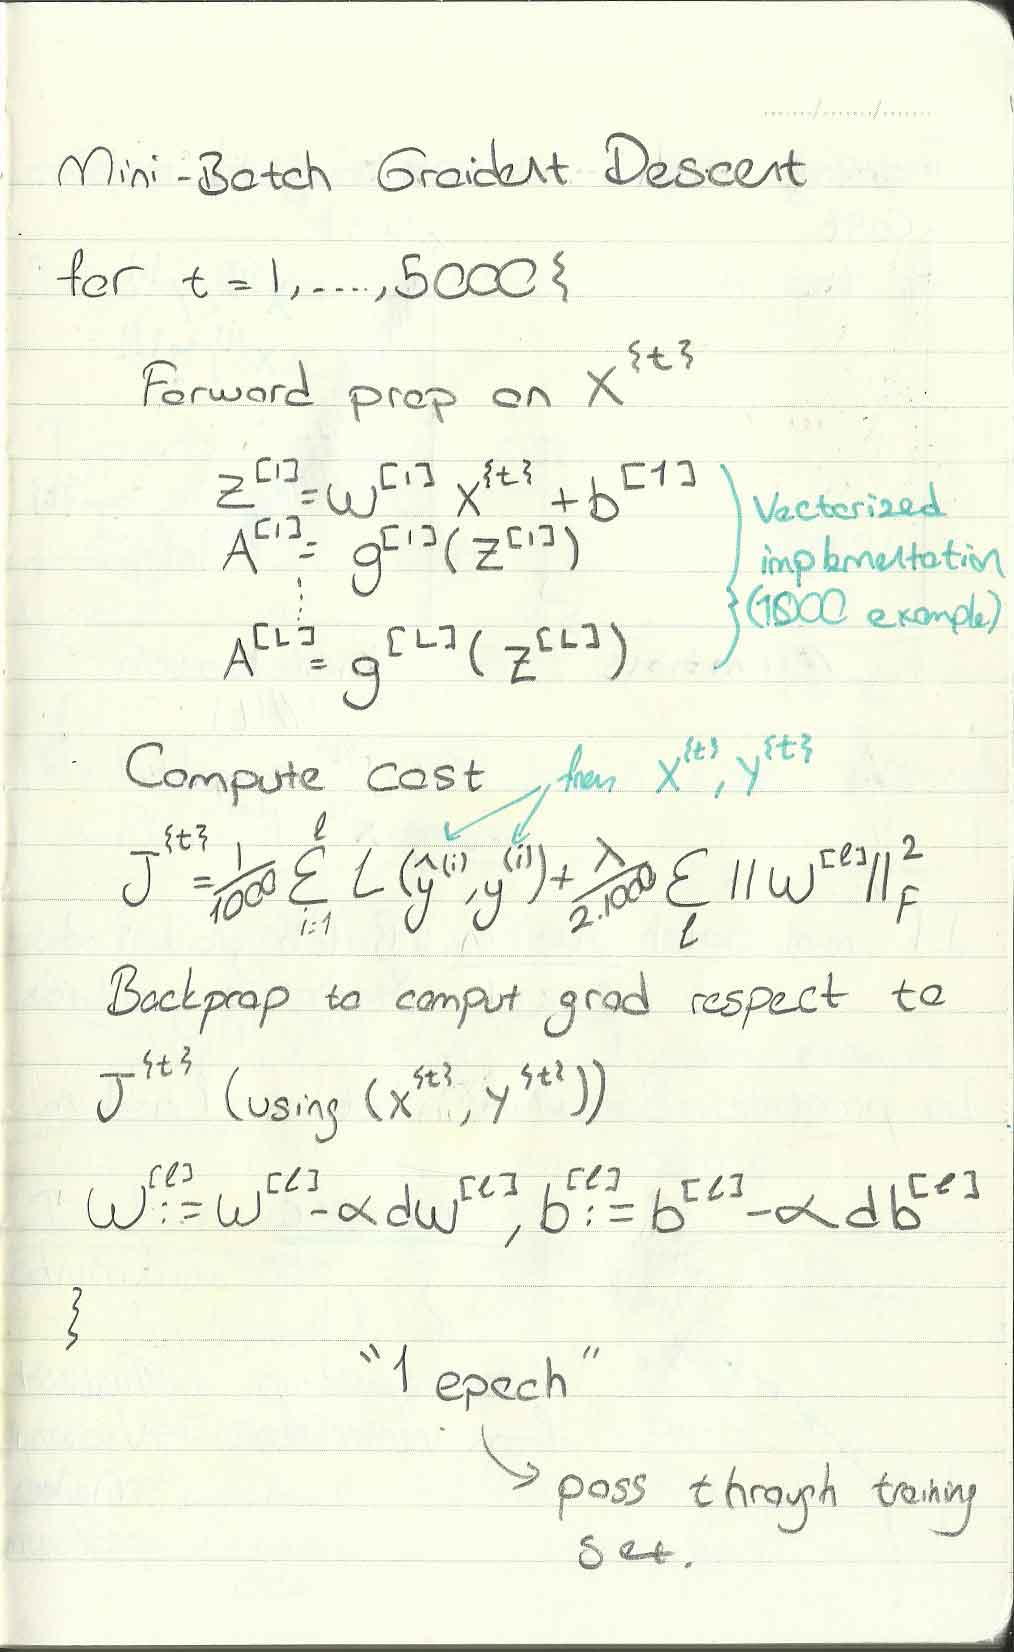 Mini-Batch Graident Descent
for t = 1, ...., 5000 {
Forward prop on X^{t}
Z^[1] = W^[1] X^{t} + b^[1]
A^[1] = g^[1] (Z^[1])
A^[L] = g^[L] (Z^[L])
Vectorized
implementation
(1000 example)
Compute cost
from X^{t}, Y^{t}
J^{t} = 1/1000 Σ_{i=1}^{l} L(ŷ^(i), y^(i)) + λ/2.1000 Σ_l ||W^[l]||_F^2
Backprop to comput grad respect to
J^{t} (using (X^{t}, Y^{t}))
W^[l] := W^[l] - α dW^[l], b^[l] := b^[l] - α db^[l]
}
"1 epoch"
pass through training
set.